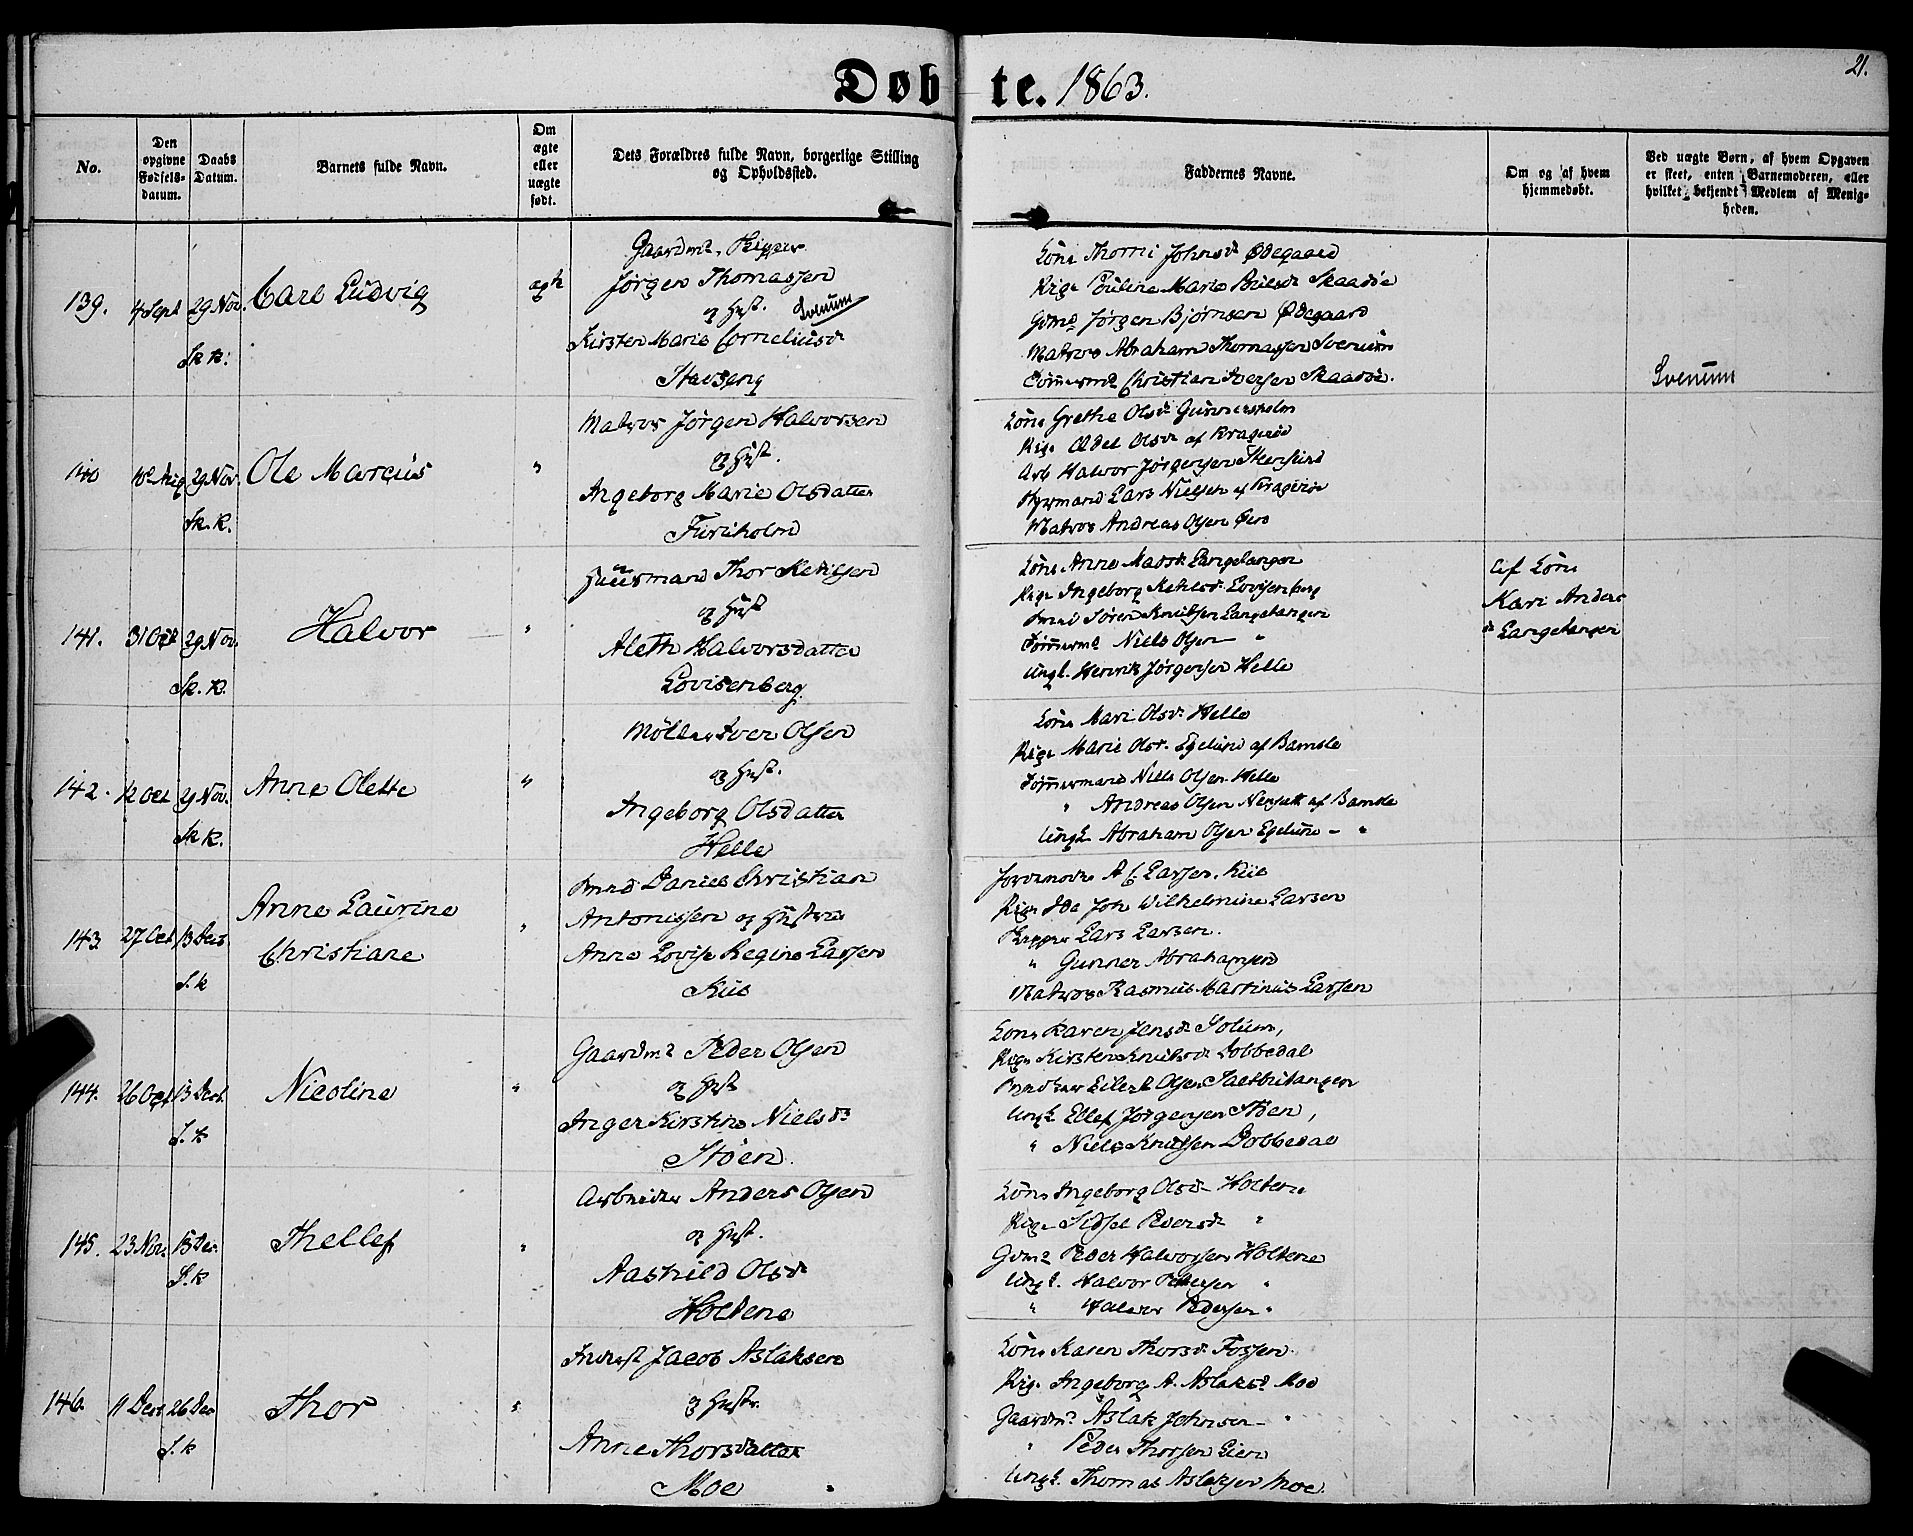 Døbte. 1863.
21.
No.
Den opgivne Fødsels-datum.
Daabs Datum.
Barnets fulde Navn.
Om ægte eller uægte født.
Dets Forældres fulde Navn, borgerlige Stilling og Opholdssted.
Faddernes Navne.
Om og af hvem hjemmedøbt.
Ved uægte Børn, af hvem Opgaven er skeet, enten Barnemoderen, eller hvilket bekjendt Medlem af Menigheden.
139. 4 Sept 29 Nov. Carl Ludvig ægte
Sk k.
Gaardm. Skipper
Jørgen Thomassen
og Hust. Svenum
Kirsten Marie Corneliusd
Stavseng
Kone Thorni Johnsd Ødegaard
Pige Pauline Marie Nielsd Skaadøe
Gdmd Jørgen Bjørnsen Ødegaard
Matros Abraham Thomassen Svenum
Tømmermd Christian Iversen Skaadøe.
Svenum
140 Aug 29 Nov. Ole Marcus "
Sk. K.
Matros Jørgen Halvorsen
og Hust.
Ingeborg Marie Olsdatter
Furuholm
Kone Grethe Olsd Gunnersholm
Pige Edel Olsd af Kragerøe
Arb Halvor Jørgensen Stensund
Styrmand Lars Nielsen af Kragerøe
Matros Andreas Olsen
141. 31 Oct 29 Nov. Halvor "
Sk. K.
Huusmand Thor Ketilsen
og Hust
Aleth Halvorsdatter
Lovisenberg
Kone Anne Madsd Langetangen
Pige Ingeborg Ketilsd Lovisenberg
Søren Knudsen Langetangen
Tømmermd Niels Olsen "
Ungk. Henrik Jørgensen Helle
Af Kone
Kari Anders
d Langetangen
142. 12 Oct 29 Nov. Anne Olette "
Sk K.
Møller Iver Olsen
og Hust.
Ingeborg Olsdatter
Helle
Kone Mari Olsd Helle
Pige Marie Olsd. Egelund af Bamble
Tømmermand Niels Olsen Helle
" Andreas Olsen af Bamble
Ungk. Abraham Olsen Egelund - "
143 27 Oct 13 Decb Anne Laurine "
Christiane
S. k
Daniel Christian
Antonissen og Hustrue
Anne Lovise Regine Larsen
Kiil
Jordemoder A C Larsen. Kiil
Pige Ida Joh Wilhelmine Larsen
Skipper Lars Larsen.
" Gunner Abrahamsen
Matros Rasmus Martinus Larsen
144. 26 Oct 13 Decb. Nicoline "
S. k
Gaardmd Peder Olsen
og Hust
Inger Kirstine Nielsd
Støen.
Kone Karen Jensd Solum,
Pige Kirsten Knudsd Dobbedal
Eilert Olsen Saltbutangen
Ungk. Ellef Jørgensen Støen,
" Niels Knudsen Dobbedal
145. 23 Nov. 13 Dec. Thellef "
S. k
Arbeider Anders Olsen
og Hust.
Aashild Olsd
Holtene
Kone Ingeborg Olsd Holtene
Pige Sidsel Pedersd "
Gdmd Peder Halvorsen Holtene
Ungk. Halvor Pedersen "
" Halvor Pedersen "
146. 11 Decb 26 Dec Thor "
S. k
Inderst Jacob Aslaksen
og Hustr.
Anne Thorsdatter
Moe
Kone Karen Thorsd Fossen.
Pige Ingeborg A. Aslaksd Moe
Gaardmd. Aslak Johnsen - "
" Peder Thorsen Lien
Ungk. Thomas Aslaksen Moe.